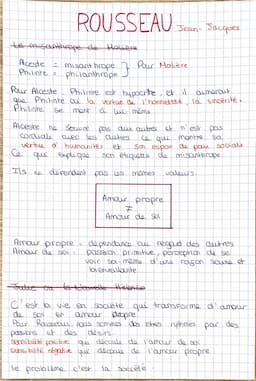 ROUSSEAU Jean-Jacques
Le misanthrope de Molière
Alceste = misanthrope } Pour Molière
Philinte = philanthrope
Pour Alceste, Philinte est hypocrite, et il aimerait
que Philinte ai la vertue de l'honnêteté, la sincérité.
Philinte se ment à lui même
Alceste ne sourire pas aux autres et n'est pas
cordiale avec les autres. Ce qui montre sa
vertue d'humanités et son espoir de paix sociale
Ce qui explique son étiquette de misanthrope
Ils ne défendent pas les mêmes valeurs.
Amour propre
≠
Amour de soi
Amour propre = dépendance au regard des autres
Amour de soi = passion primitive, perception de se
voir soi-même d'une façon saine et
bienveillante
ou la Nouvelle Héloïse
C'est la vie en société qui transforme d'amour
de soi en amour propre.
Pour Rousseau, nous sommes des êtres rythmés par des
passions et des désirs.
sensibilité positive qui découle de l'amour de soi
sensibilité négative qui découle de l'amour propre
le problème c'est la société